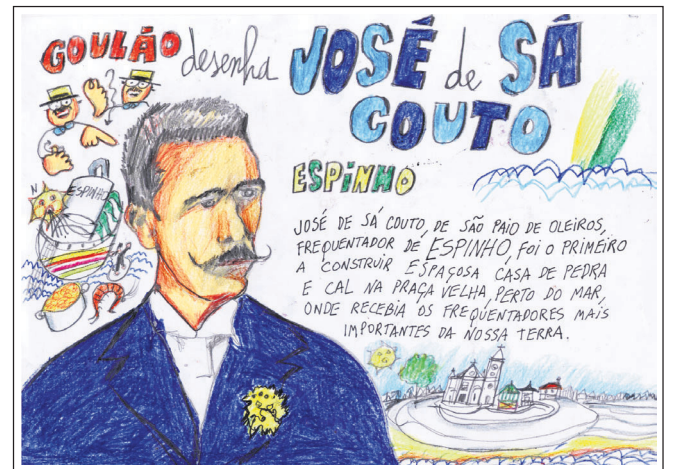 GOULÃO desenha JOSÉ de SÁ
COUTO
ESPINHO
ESPINHO
JOSÉ DE SÁ COUTO, DE SÃO PAIO DE OLEIROS,
FREQUENTADOR DE ESPINHO, FOI O PRIMEIRO
A CONSTRUIR ESPAÇOSA CASA DE PEDRA
E CAL NA PRAÇA VELHA, PERTO DO MAR,
ONDE RECEBIA OS FREQUENTADORES MAIS
IMPORTANTES DA NOSSA TERRA.